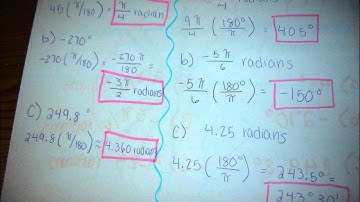 45(π/180) = π/4 radian
b) -270°
-270(π/180) = -270π/180 =
-3π/2 radians
c) 249.8°
249.8(π/180) ≈ 4.360 radians
9π/4 (180°/π) = 405°
b) -5π/6 radians
-5π/6 (180°/π) = -150°
c) 4.25 radians
4.25(180°/π) = 243.5° =
243° 30'